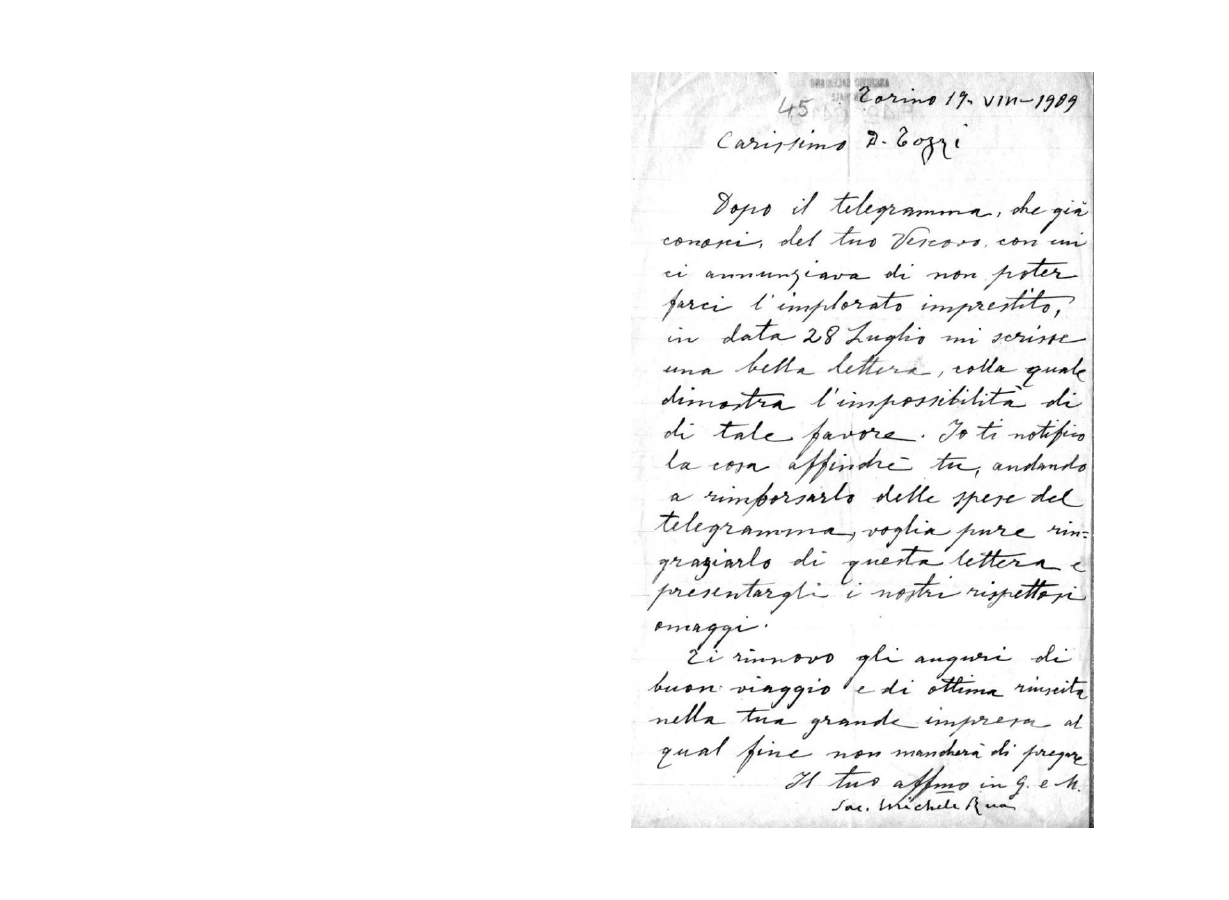 ARCHIVIO SALESIANO
45
Torino 19-VIII-1909
Carissimo D. Tozzi
Dopo il telegramma, che già
conosci, del tuo Vescovo, con cui
ci annunziava di non poter
farci l'implorato imprestito,
in data 28 Luglio mi scrisse
una bella lettera, colla quale
dimostra l'impossibilità di
di tale favore. Io ti notifico
la cosa affinchè tu, andando
a rimborsarlo delle spese del
telegramma, voglia pure rin=
graziarlo di questa lettera e
presentargli i nostri rispettosi
omaggi.
Ti rinnovo gli auguri di
buon viaggio e di ottima riuscita
nella tua grande impresa al
qual fine non mancherà di pregare
Il tuo affmo in G. e M.
Sac. Michele Rua